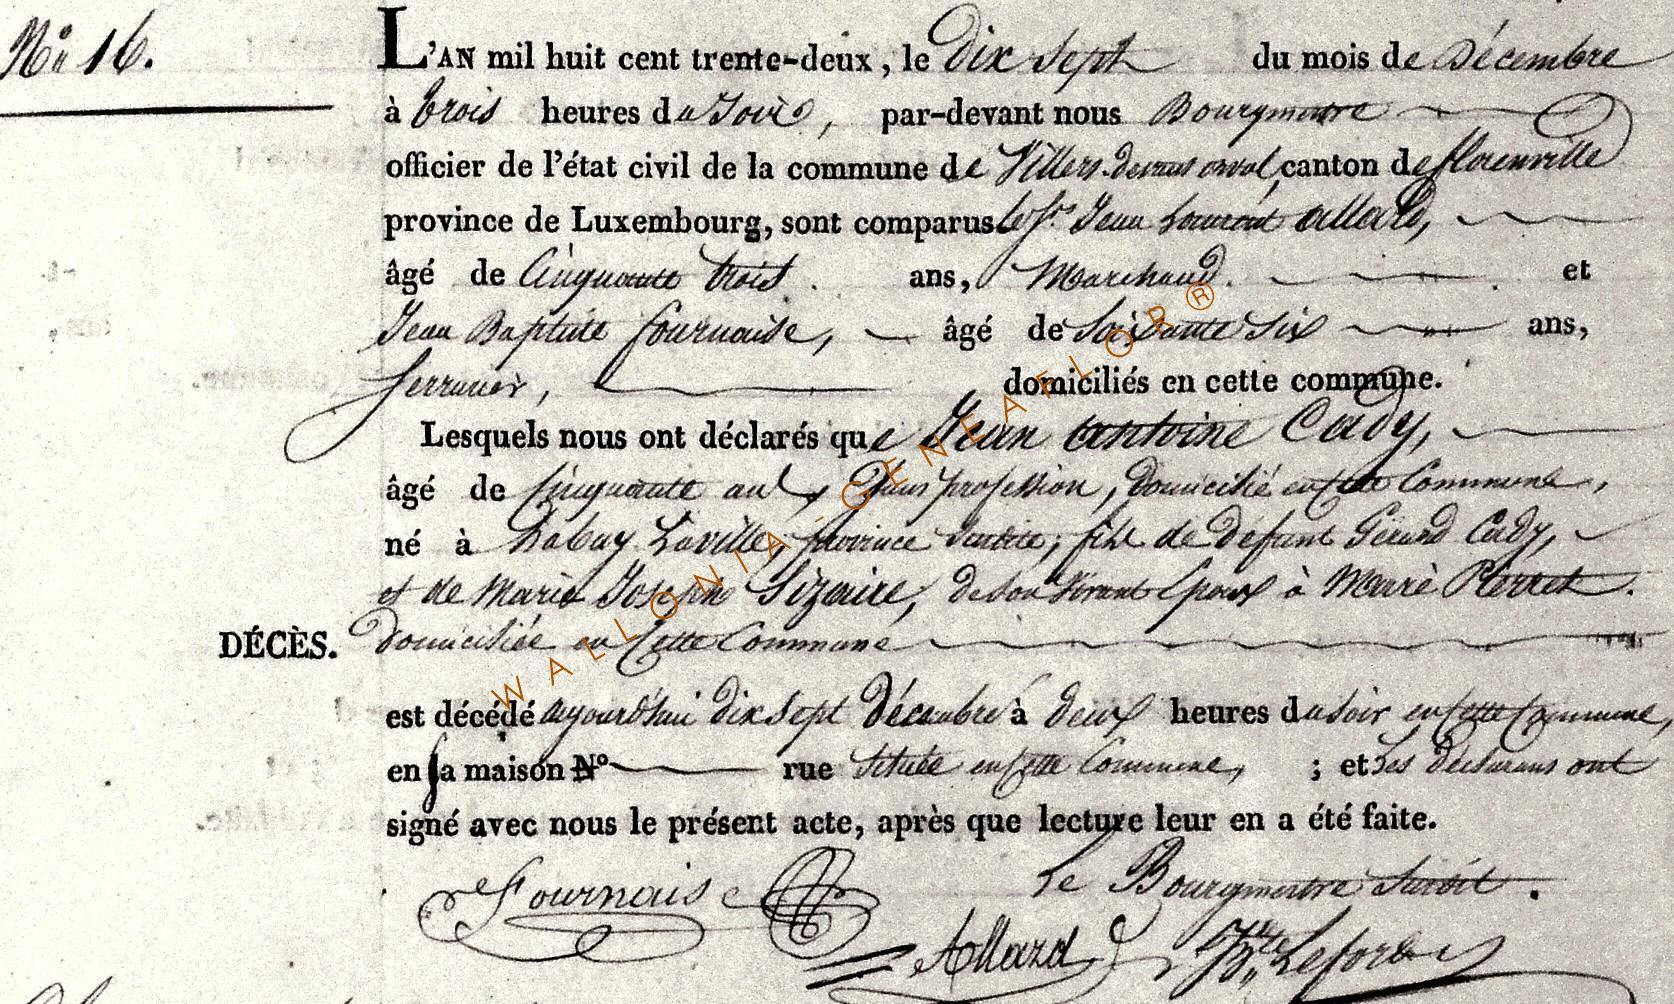 No 16.
L'AN mil huit cent trente-deux, le Dix Sept du mois de Décembre
à trois heures du Soir, par-devant nous Bourgmestre
officier de l'état civil de la commune de Villers-devant orval, canton de florenville
province de Luxembourg, sont comparus les Srs Jean Laurent allard,
âgé de Cinquante trois ans, Marchand. et
Jean Baptiste fournaise, âgé de Soixante Six ans,
Serrurier, domiciliés en cette commune.
Lesquels nous ont déclarés que Jean antoine Cady,
âgé de Cinquante ans, Sans profession, Domicilié en Cette Commune,
né à habay Laville, province Susdite, fils de Defunt Gérard Cady,
et de Marie Joseph Sizaire, de son Vivant Epoux à Marie Pierret.
DÉCÈS. Domiciliée en Cette Commune
est décédé aujourd'hui dix sept Décembre à Deux heures du Soir en Cette Commune,
en sa maison N° rue Située en Cette Commune, ; et Les Déclarans ont
signé avec nous le présent acte, après que lecture leur en a été faite.
Fournaise Le Bourgmestre Susdit.
Allard Bte Lefort
WALLONIA-GENEAFLOR®